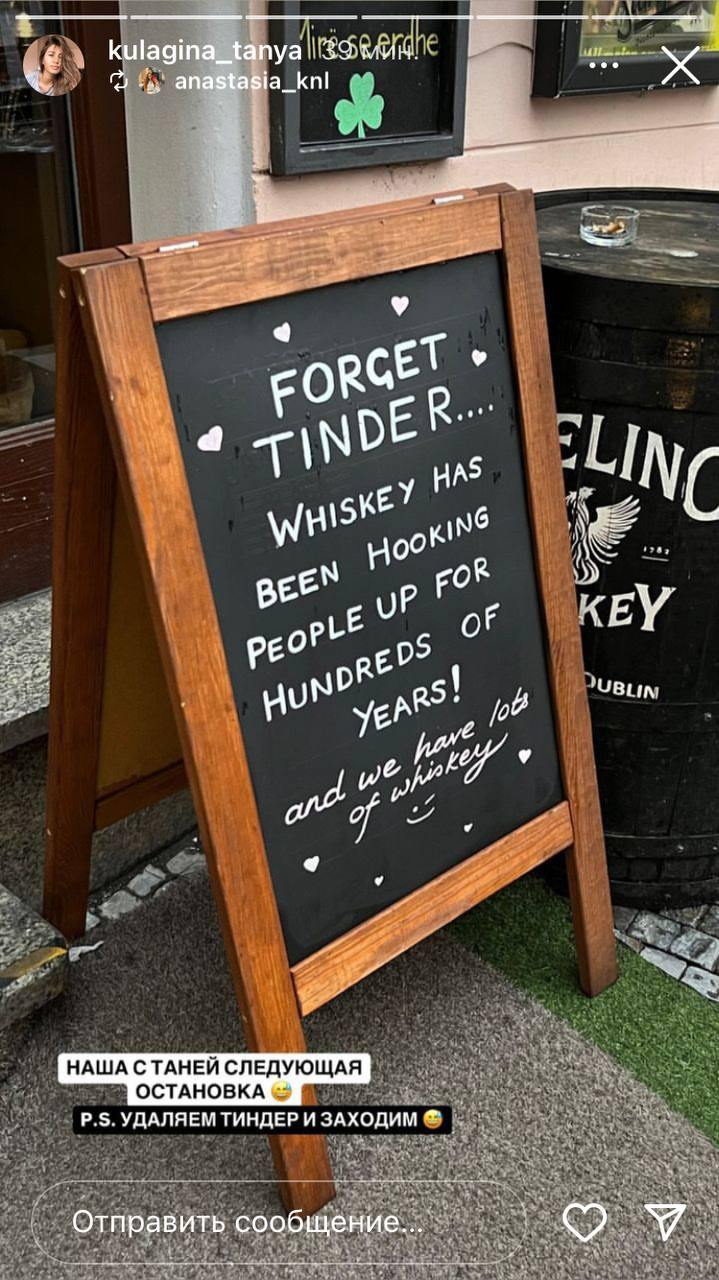 kulagina_tanya 39 мин.
anastasia_knl
Mirë se erdhe
FORGET
TINDER....
WHISKEY HAS
BEEN HOOKING
PEOPLE UP FOR
HUNDREDS OF
YEARS!
and we have lots
of whiskey
ELING
1782
KEY
DUBLIN
НАША С ТАНЕЙ СЛЕДУЮЩАЯ
ОСТАНОВКА 😅
P.S. УДАЛЯЕМ ТИНДЕР И ЗАХОДИМ 😅
Отправить сообщение...